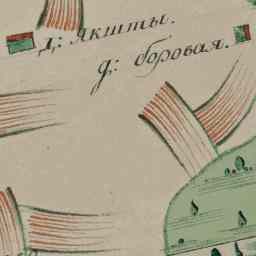 д: Якшты.
д: боровая.